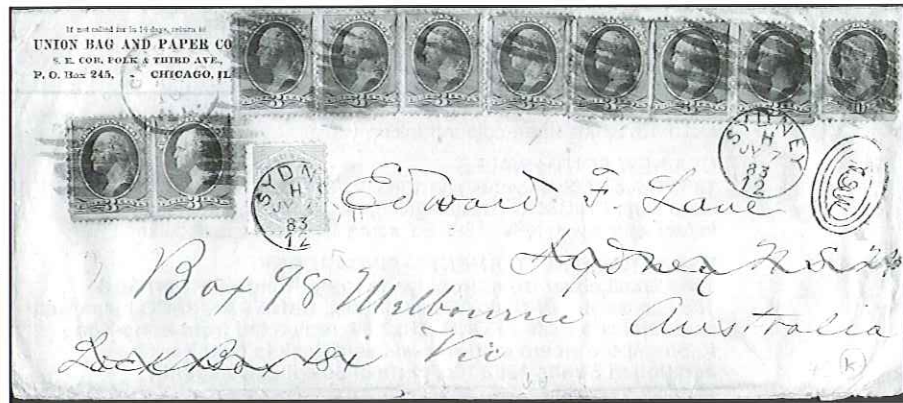 If not called for in 10 days, return to
UNION BAG AND PAPER CO
S. E. COR. POLK & THIRD AVE.,
P. O. Box 245, - CHICAGO, IL
3 3 3 3 3 3 3
3 3
SYDNEY
H
JY
83
12
SYDN
H
JY
83
12
NSW
Edward F Lane
Sydney N.S.W.
Box 98 Melbourne Australia
Lock Box Vic
K